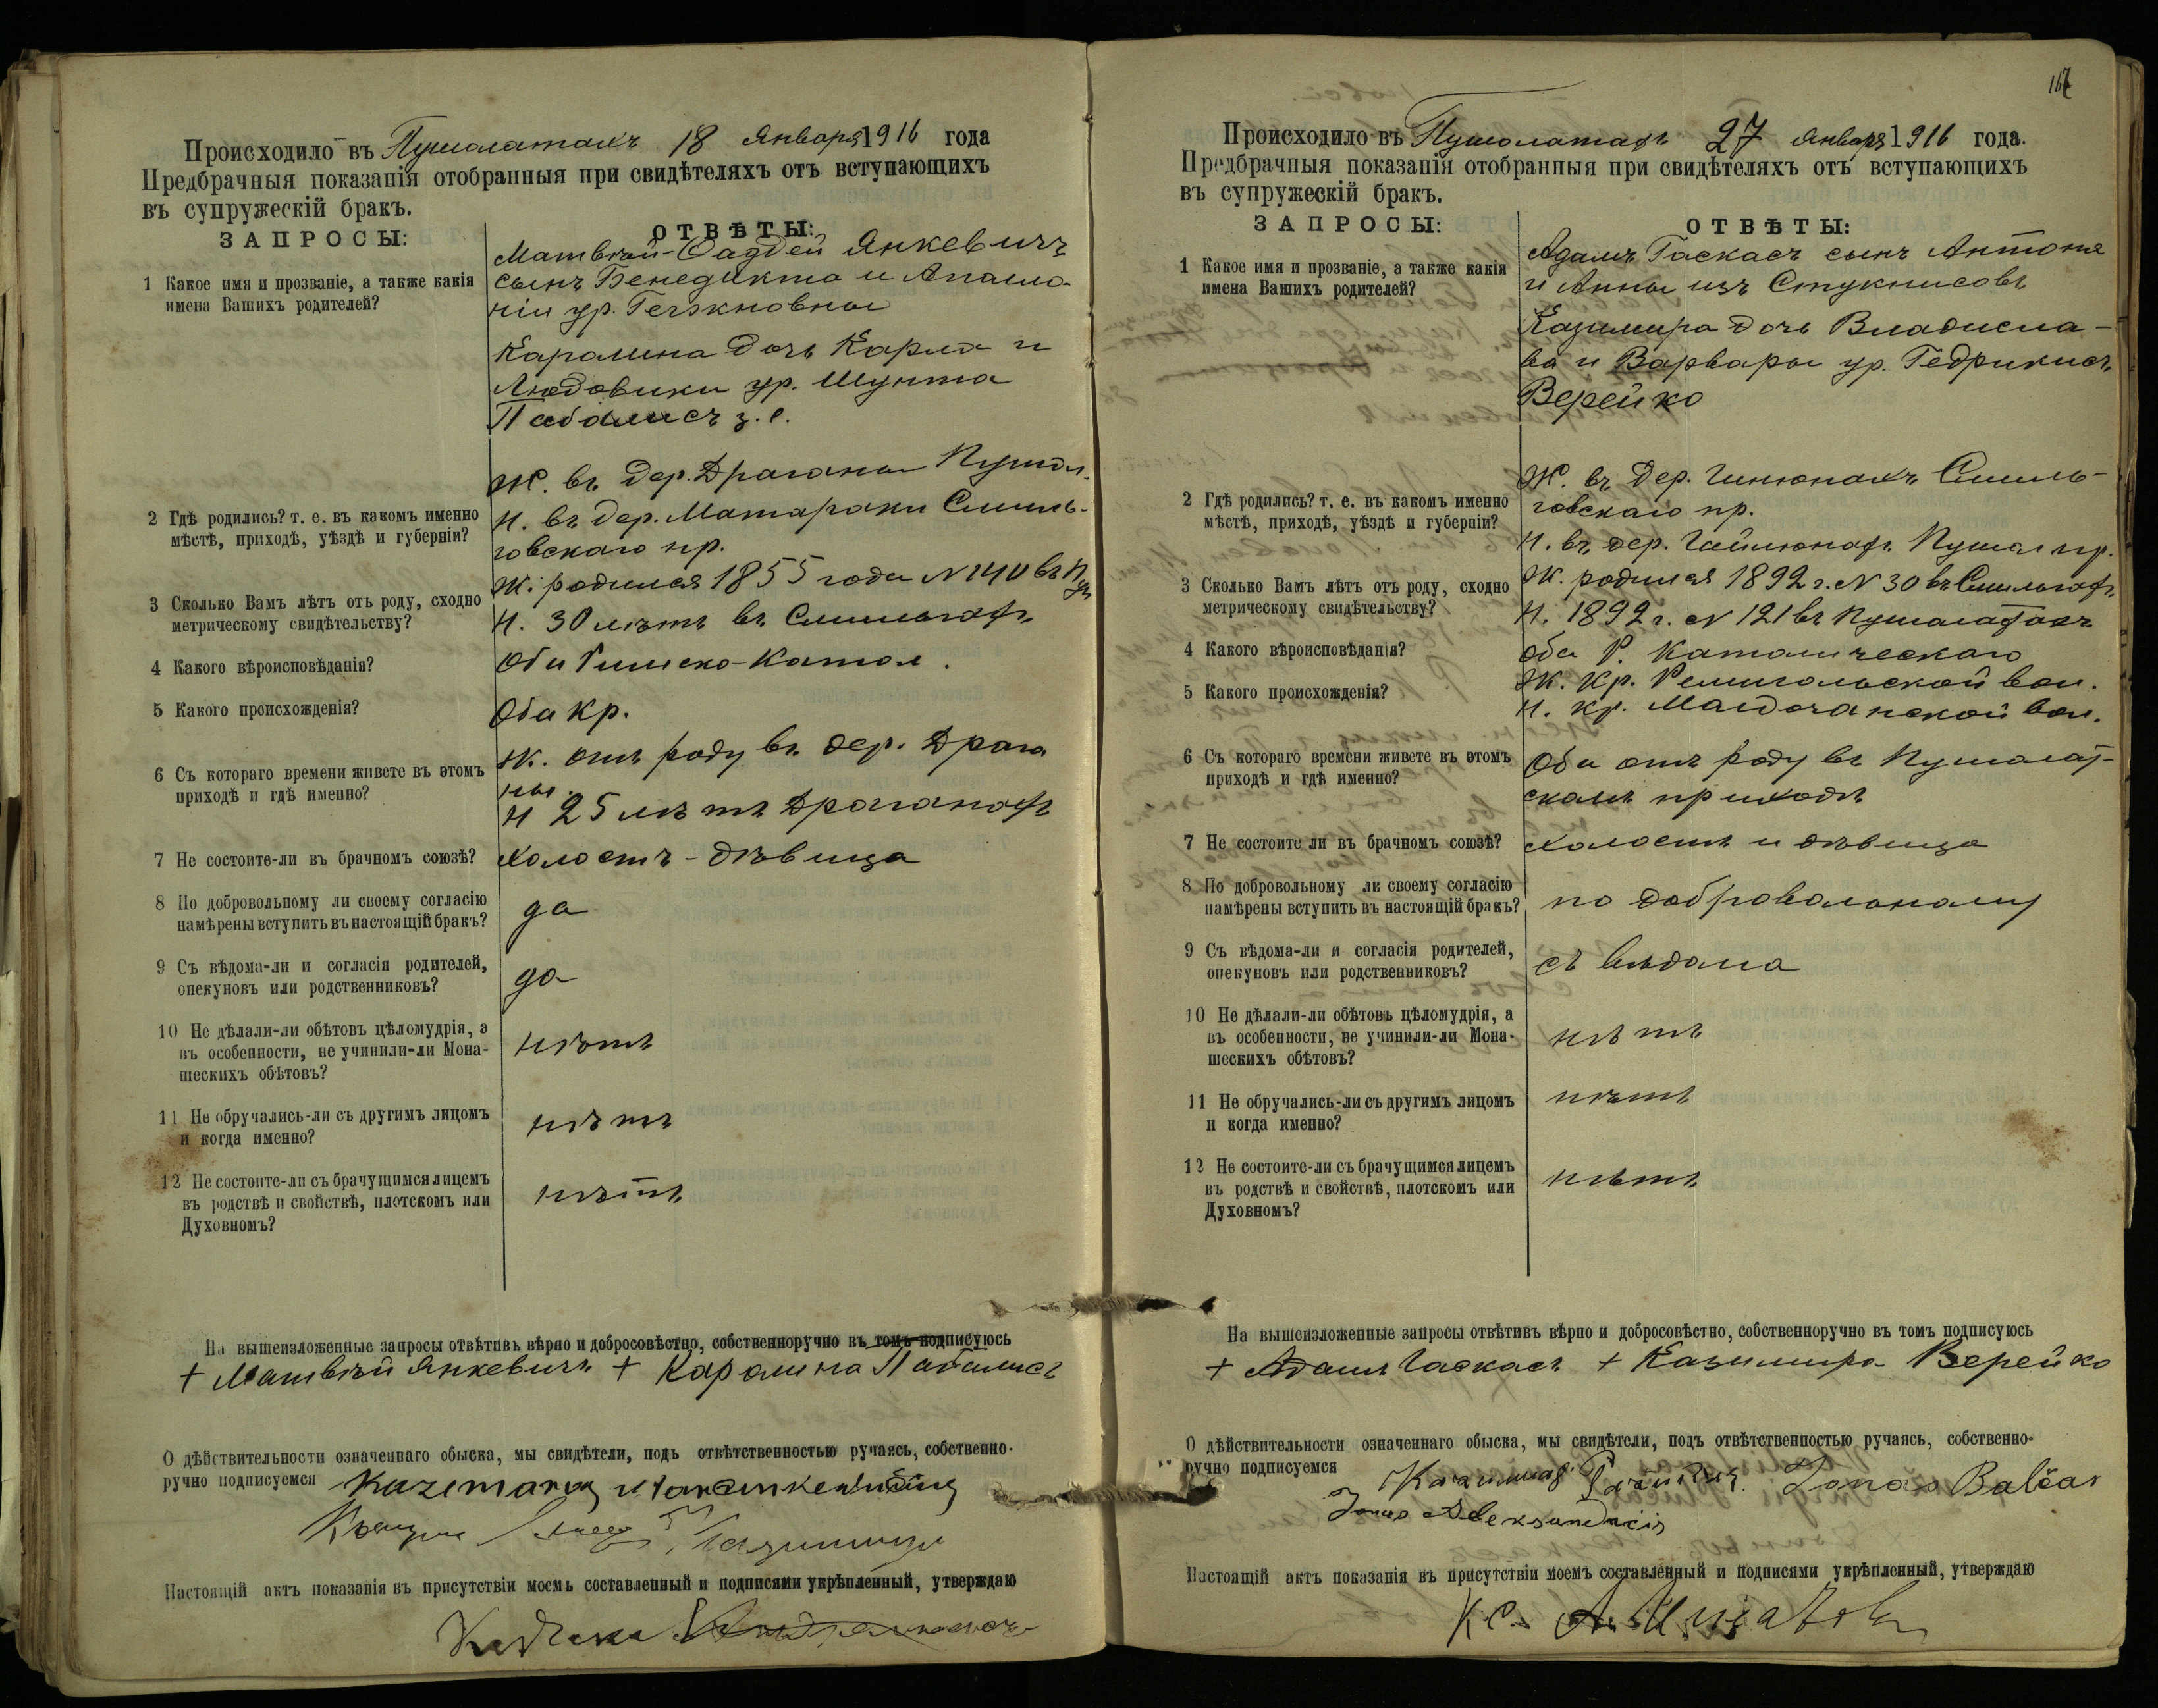 Происходило въ Пушолатахъ 18 Января 1916 года
Предбрачныя показанія отобранныя при свидѣтеляхъ отъ вступающихъ
въ супружескій бракъ.
ЗАПРОСЫ:
ОТВѢТЫ:
1 Какое имя и прозваніе, а также какія
имена Вашихъ родителей?
Матвѣй-Фаддей Янкевичъ
сынъ Бенедикта и Аполло-
ніи ур.
Каролина дочь Карла и
Людовики ур. Шунта
Пабалисъ з. с.
2 Гдѣ родились? т. е. въ какомъ именно
мѣстѣ, приходѣ, уѣздѣ и губерніи?
Ж. въ дер. Драганы Пушол.
Н. въ дер. Матараки Смиль-
говскаго пр.
3 Сколько Вамъ лѣтъ отъ роду, сходно
метрическому свидѣтельству?
Ж. родился 1855 года N 140 въ Пуш
Н. 30 лѣтъ въ Смильгяхъ
4 Какого вѣроисповѣданія?
Оби Римско-Катол.
5 Какого происхожденія?
Оба кр.
6 Съ котораго времени живете въ этомъ
приходѣ и гдѣ именно?
Ж. отъ роду въ дер. Драга
ны.
Н 25 лѣтъ Драганахъ
7 Не состоите-ли въ брачномъ союзѣ?
Холостъ - дѣвица
8 По добровольному ли своему согласію
намѣрены вступить въ настоящій бракъ?
да
9 Съ вѣдома-ли и согласія родителей,
опекуновъ или родственниковъ?
да
10 Не дѣлали-ли обѣтовъ цѣломудрія, а
въ особенности, не учинили-ли Мона-
шескихъ обѣтовъ?
нѣтъ
11 Не обручались-ли съ другимъ лицомъ
и когда именно?
нѣтъ
12 Не состоите-ли съ брачущимся лицемъ
въ родствѣ и свойствѣ, плотскомъ или
Духовномъ?
нѣтъ
На вышеизложенные запросы отвѣтивъ вѣрно и добросовѣстно, собственноручно въ томъ подписуюсь
+ Матвѣй Янкевичъ + Каролина Пабалисъ
О дѣйствительности означеннаго обыска, мы свидѣтели, подъ отвѣтственностью ручаясь, собственно-
ручно подписуемся
Настоящій актъ показанія въ присутствіи моемъ составленный и подписями укрѣпленный, утверждаю
167
Происходило въ Пушолатахъ 27 Января 1916 года.
Предбрачныя показанія отобранныя при свидѣтеляхъ отъ вступающихъ
въ супружескій бракъ.
ЗАПРОСЫ:
ОТВѢТЫ:
1 Какое имя и прозваніе, а также какія
имена Вашихъ родителей?
Адамъ Гаскасъ сынъ Антона
и Анны изъ Стукнисовъ
Казимира дочь Владисла-
ва и Варвары ур. Гедрикисъ
Верейко
2 Гдѣ родились? т. е. въ какомъ именно
мѣстѣ, приходѣ, уѣздѣ и губерніи?
Ж. въ дер. Гинюнахъ Смиль-
говскаго пр.
Н. въ дер. Гайлюнахъ Пушол пр.
3 Сколько Вамъ лѣтъ отъ роду, сходно
метрическому свидѣтельству?
Ж. родился 1892 г. N 30 въ Смильгяхъ
Н. 1892 г. N 121 въ Пушолатахъ
4 Какого вѣроисповѣданія?
оба Р. Католическаго
5 Какого происхожденія?
Ж. Кр. Ремигольской вол.
Н. кр. вол.
6 Съ котораго времени живете въ этомъ
приходѣ и гдѣ именно?
Оба отъ роду въ Пушолат-
скомъ приходѣ
7 Не состоите ли въ брачномъ союзѣ?
Холостъ и дѣвица
8 По добровольному ли своему согласію
намѣрены вступить въ настоящій бракъ?
по добровольному
9 Съ вѣдома-ли и согласія родителей,
опекуновъ или родственниковъ?
съ вѣдома
10 Не дѣлали-ли обѣтовъ цѣломудрія, а
въ особенности, не учинили-ли Мона-
шескихъ обѣтовъ?
нѣтъ
11 Не обручались-ли съ другимъ лицомъ
и когда именно?
нѣтъ
12 Не состоите-ли съ брачущимся лицемъ
въ родствѣ и свойствѣ, плотскомъ или
Духовномъ?
нѣтъ
На вышеизложенные запросы отвѣтивъ вѣрно и добросовѣстно, собственноручно въ томъ подписуюсь
+ Адамъ Гаскасъ + Казимира Верейко
О дѣйствительности означеннаго обыска, мы свидѣтели, подъ отвѣтственностью ручаясь, собственно-
ручно подписуемся Jonas Balčas
Jonas Aleksandricis
Настоящій актъ показанія въ присутствіи моемъ составленный и подписями укрѣпленный, утверждаю